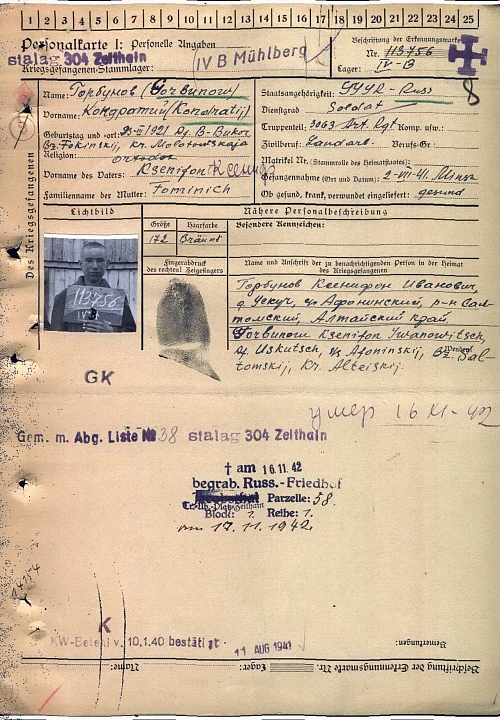 1 2 3 4 5 6 7 8 9 10 11 12 13 14 15 16 17 18 19 20 21 22 23 24 25
Personalkarte I: Personelle Angaben
stalag 304 Zeithain
Kriegsgefangenen-Stammlager:
IV B Mühlberg
Beschriftung der Erkennungsmarke
Nr. 113756
Lager: IV-B
8
Des Kriegsgefangenen
Name: Горбунов (Gorbunow)
Vorname: Кондратий (Kondratij)
Geburtstag und -ort: 1921 Df. B-Bukor
Bz. Fokinskij, Kr. Molotowskaja
Religion: ortodox
Vorname des Vaters: Ksenifon
Familienname der Mutter: Fominich
Staatsangehörigkeit: Russ
Dienstgrad Soldat
Truppenteil: 3063 Art. Rgt Komp. usw.:
Zivilberuf: Landarb. Berufs-Gr.
Matrikel Nr. (Stammrolle des Heimatstaates):
Gefangennahme (Ort und Datum): 2-VII-41. Minsk
Ob gesund, krank, verwundet eingeliefert: gesund
Lichtbild
Nähere Personalbeschreibung
Größe Haarfarbe
172 Bräunt
Besondere Kennzeichen:
113756
IVB
Fingerabdruck
des rechten! Zeigefingers
Name und Anschrift der zu benachrichtigenden Person in der Heimat
des Kriegsgefangenen
Горбунов Ксенифон Иванович,
д. Ускуч, с/с Афонинский, р-н Сал-
томский, Алтайский край
Gorbunow Ksenifon Iwanowitsch,
Df. Uskutsch, s/s Afoninskij, Bz. Sal-
Wenden!
tomskij, Kr. Alteiskij
GK
умер 16 XI-42
Gem. m. Abg. Liste № 38 stalag 304 Zeithain
† am 16.11.42
begrab. Russ.-Friedhof
Parzelle: 58.
Block: 1. Reihe: 1.
am 17.11.1942.
K
KW-Befehl v. 10.1.40 bestätigt
11 AUG 1941
Bemerkungen:
Beschriftung der Erkennungsmarke Nr.
Lager:
Name: